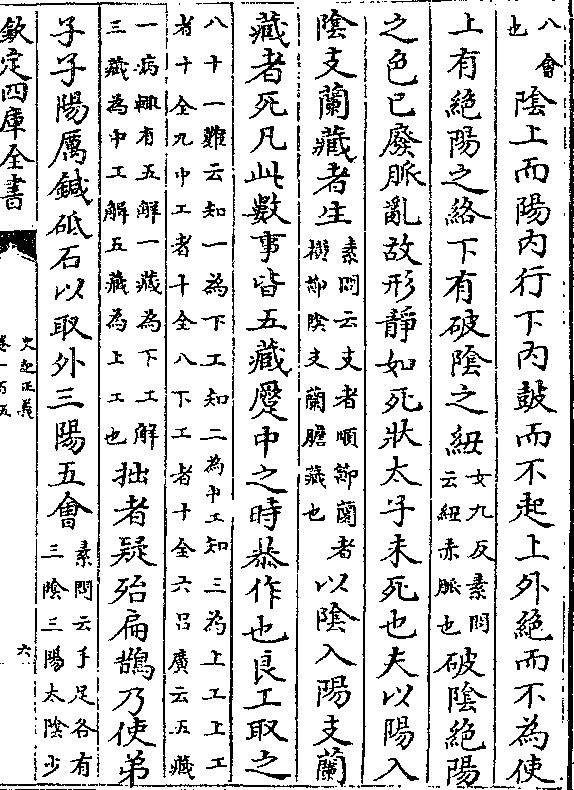 八會
也
陰上而陽内行下内鼓而不起上外絶而不為使
上有絶陽之絡下有破陰之紐
女九反素問
云紐赤脈也
破陰絶陽
之色已廢脈亂故形靜如死狀太子未死也夫以陽入
陰支蘭藏者生
素問云支者順節蘭者
橫節陰支蘭膽藏也
以陰入陽支蘭
藏者死凡此數事皆五藏蹷中之時㬥作也良工取之
八十一難云知一為下工知二為中工知三為上工上工
者十全九中工者十全八下工者十全六吕廣云五藏
一病輙有五解一藏為下工解
三藏為中工解五藏為上工也
拙者疑殆扁鵲乃使弟
子子陽厲鍼砥石以取外三陽五會
素問云手足各有
三陰三陽太陰少
欽定四庫全書
史記正義
卷一百五
六